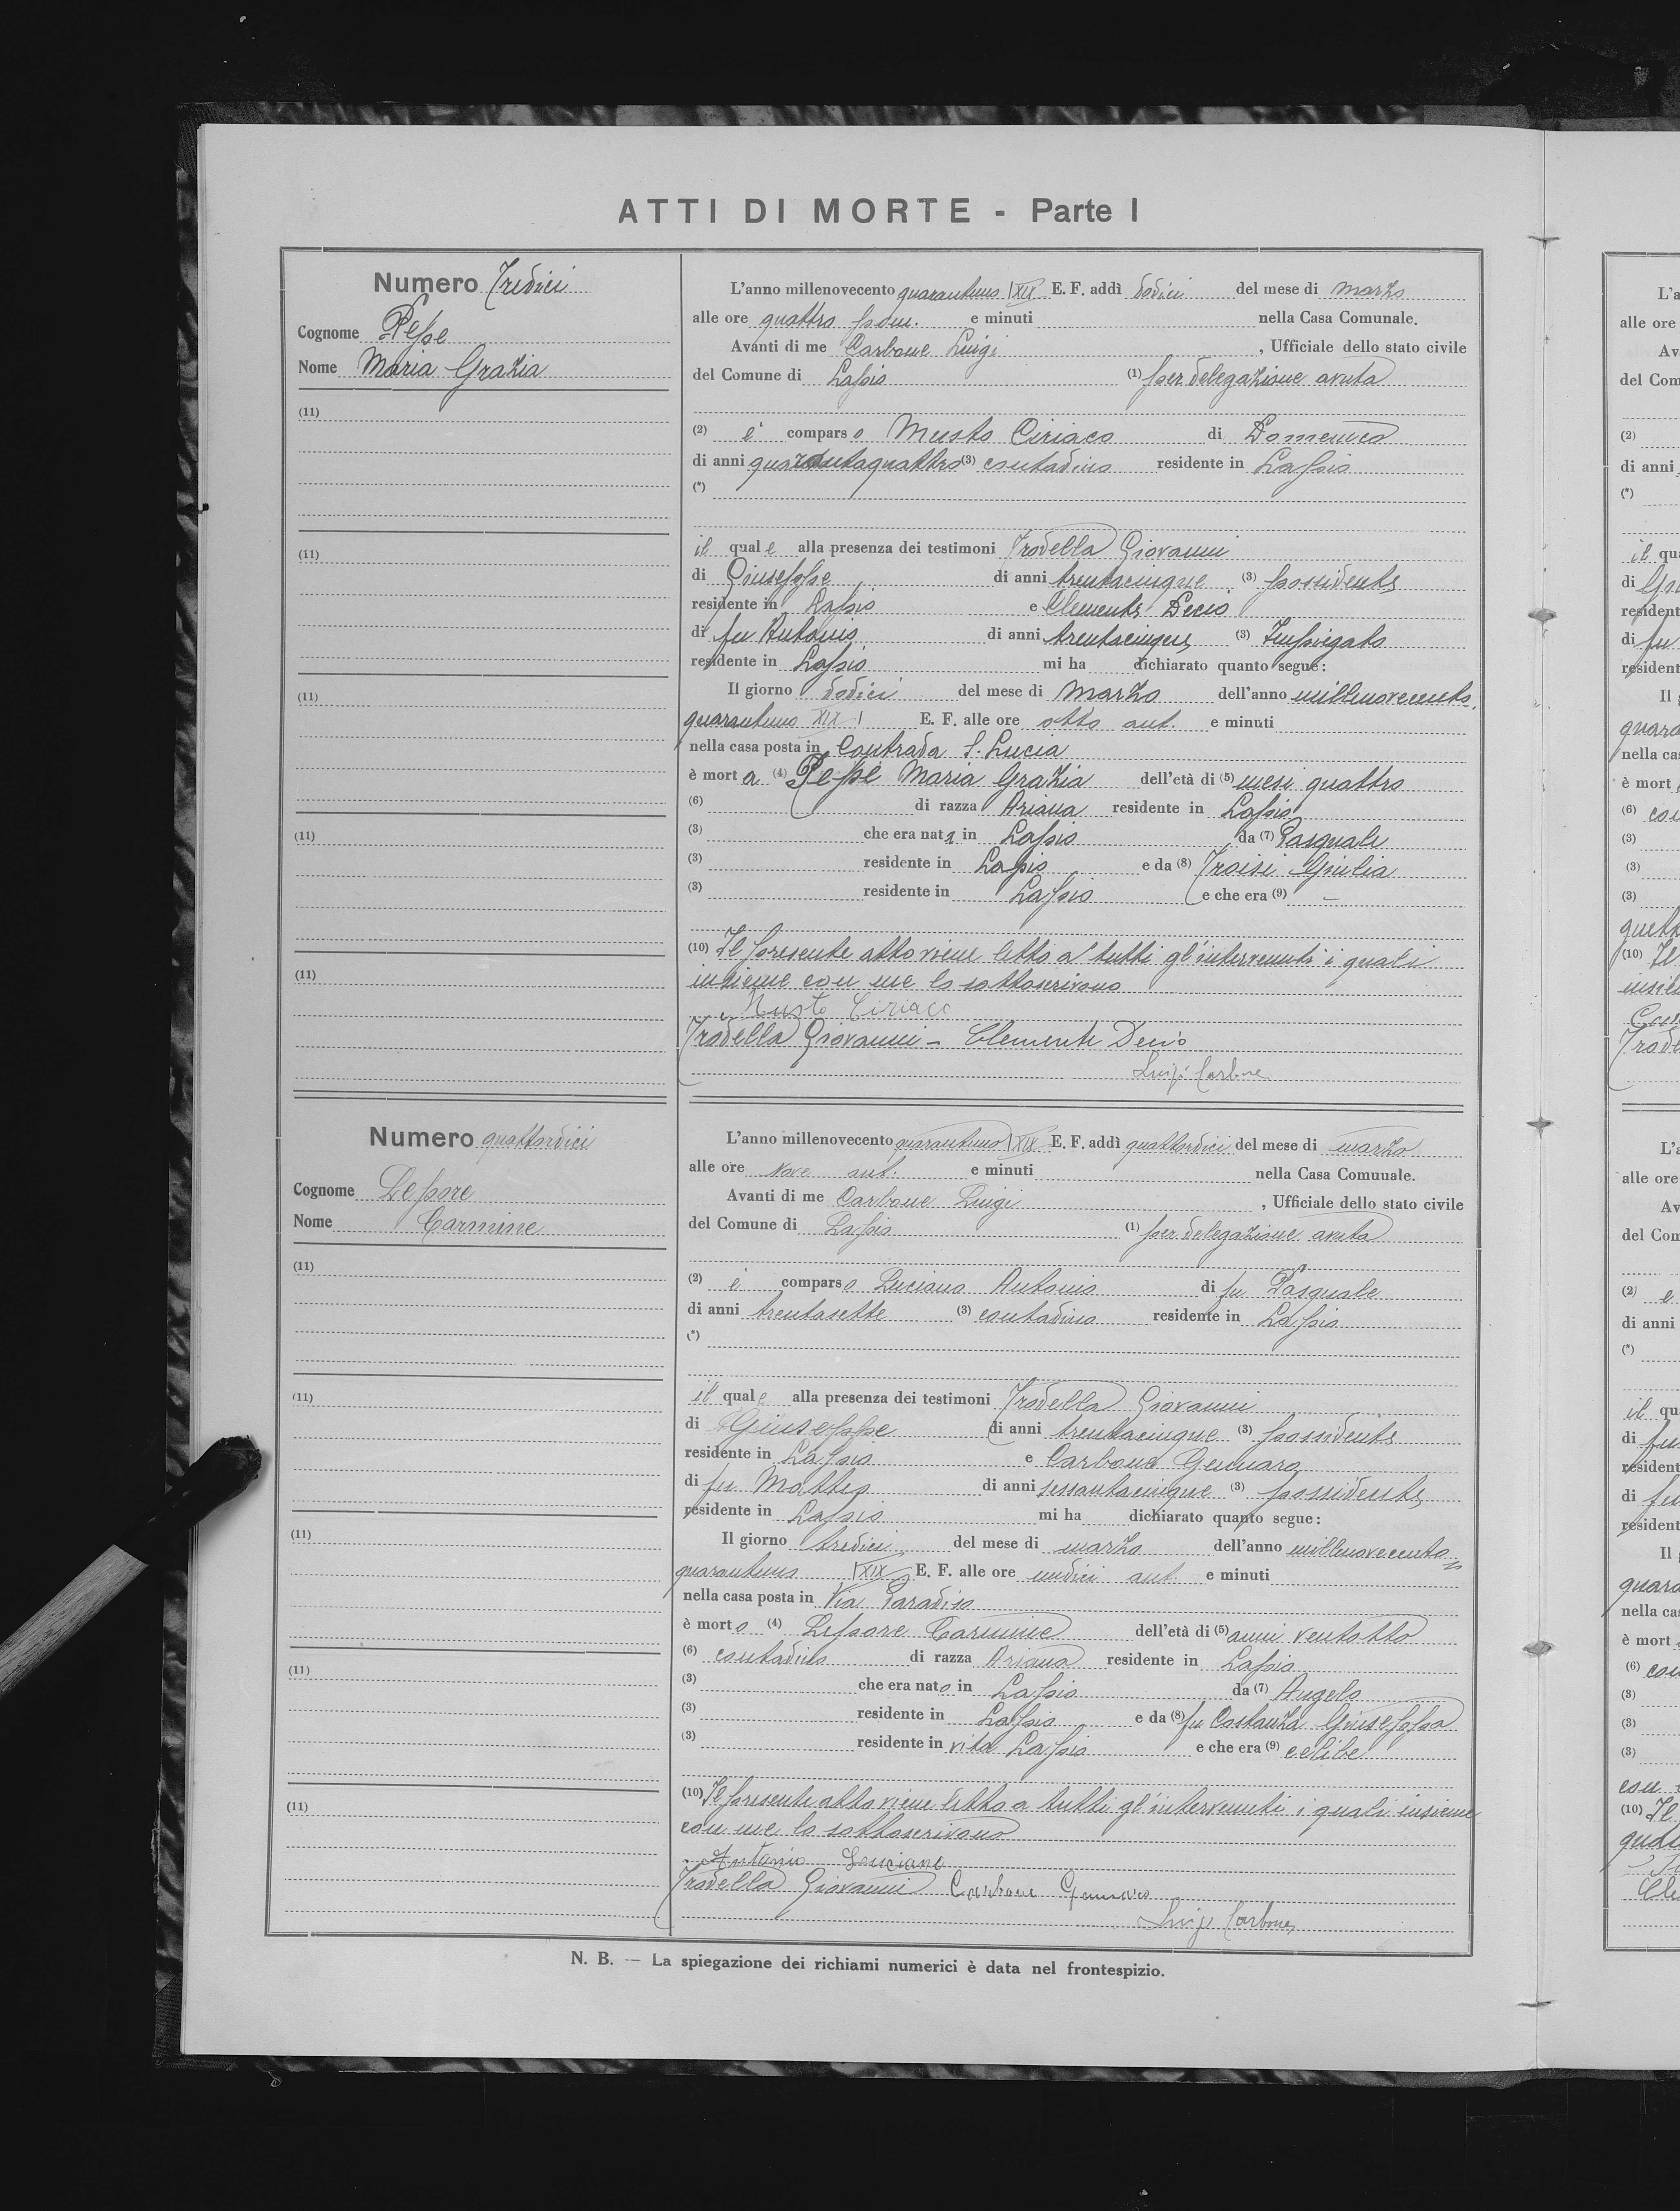 ATTI DI MORTE - Parte I
Numero Tredici
Cognome Pepe
Nome Maria Grazia
(11)
(11)
(11)
(11)
(11)
L'anno millenovecento quarantuno XIX E. F. addì dodici del mese di marzo
alle ore quattro pom. e minuti nella Casa Comunale.
Avanti di me Carbone Luigi , Ufficiale dello stato civile
del Comune di Lapio (1) per delegazione avuta
(2) è comparso Musto Ciriaco di Domenico
di anni quarantaquattro (3) contadino residente in Lapio
(*)
il quale alla presenza dei testimoni Trodella Giovanni
di Giuseppe di anni trentacinque (3) possidente
residente in Lapio e Clemente Decio
di fu Antonio di anni trentacinque (3) Impiegato
residente in Lapio mi ha dichiarato quanto segue:
Il giorno dodici del mese di marzo dell'anno millenovecento
quarantuno XIX E. F. alle ore otto ant. e minuti
nella casa posta in Contrada S. Lucia
è morta (4) Pepe Maria Grazia dell'età di (5) mesi quattro
(6) di razza Ariana residente in Lapio
(3) che era nata in Lapio da (7) Pasquale
(3) residente in Lapio e da (8) Troisi Giulia
(3) residente in Lapio e che era (9) –
(10) Il presente atto viene letto a tutti gl'intervenuti i quali
insieme con me lo sottoscrivono
Musto Ciriaco
Trodella Giovanni – Clemente Decio
Luigi Carbone
Numero quattordici
Cognome Lepore
Nome Carmine
(11)
(11)
(11)
(11)
(11)
L'anno millenovecento quarantuno XIX E. F. addì quattordici del mese di marzo
alle ore nove ant. e minuti nella Casa Comunale.
Avanti di me Carbone Luigi , Ufficiale dello stato civile
del Comune di Lapio (1) per delegazione avuta
(2) è comparso Luciano Antonio di fu Pasquale
di anni trentasette (3) contadino residente in Lapio
(*)
il quale alla presenza dei testimoni Trodella Giovanni
di Giuseppe di anni trentacinque (3) possidente
residente in Lapio e Carbone Gennaro
di fu Matteo di anni sessantacinque (3) possidente
residente in Lapio mi ha dichiarato quanto segue:
Il giorno tredici del mese di marzo dell'anno millenovecento=
quarantuno XIX E. F. alle ore undici ant. e minuti
nella casa posta in Via Paradiso
è morto (4) Lepore Carmine dell'età di (5) anni ventotto
(6) contadino di razza Ariana residente in Lapio
(3) che era nato in Lapio da (7) Angelo
(3) residente in Lapio e da (8) fu Costanza Giuseppa
(3) residente in vita Lapio e che era (9) celibe
(10) Il presente atto viene letto a tutti gl'intervenuti i quali insieme
con me lo sottoscrivono
Antonio Luciano
Trodella Giovanni Carbone Gennaro
Luigi Carbone
N. B. — La spiegazione dei richiami numerici è data nel frontespizio.